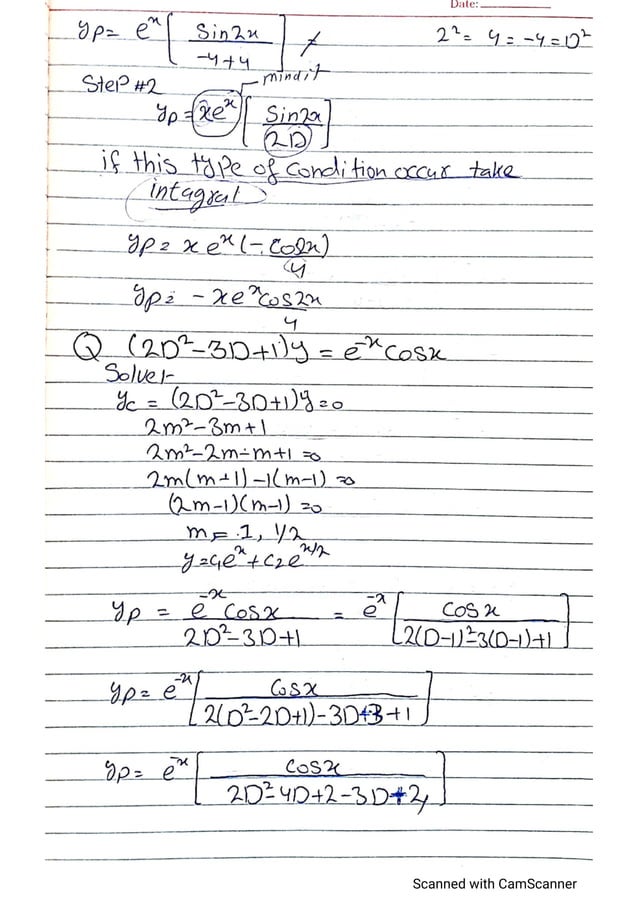 Date:
yp = e^x [ Sin2x / -4+4 ] ≠ 2² = 4 = -4 = D²
SteP #2 mind it
yp = xe^x [ Sin2x / 2D ]
if this type of condition occur take
intagral
yp = x e^x (- Cos2x / 4)
yp = - xe^x cos2x / 4
Q (2D²-3D+1)y = e^-x cosx
Solve:-
yc = (2D²-3D+1)y=0
2m²-3m+1
2m²-2m-m+1=0
2m(m-1)-1(m-1)=0
(2m-1)(m-1)=0
m = 1, 1/2
y=c1e^x+c2e^x/2
yp = e^-x cosx / 2D²-3D+1 = e^-x [ cosx / 2(D-1)²-3(D-1)+1 ]
yp = e^-x [ cosx / 2(D²-2D+1)-3D+3+1 ]
yp = e^-x [ cosx / 2D²-4D+2-3D+2, ]
Scanned with CamScanner